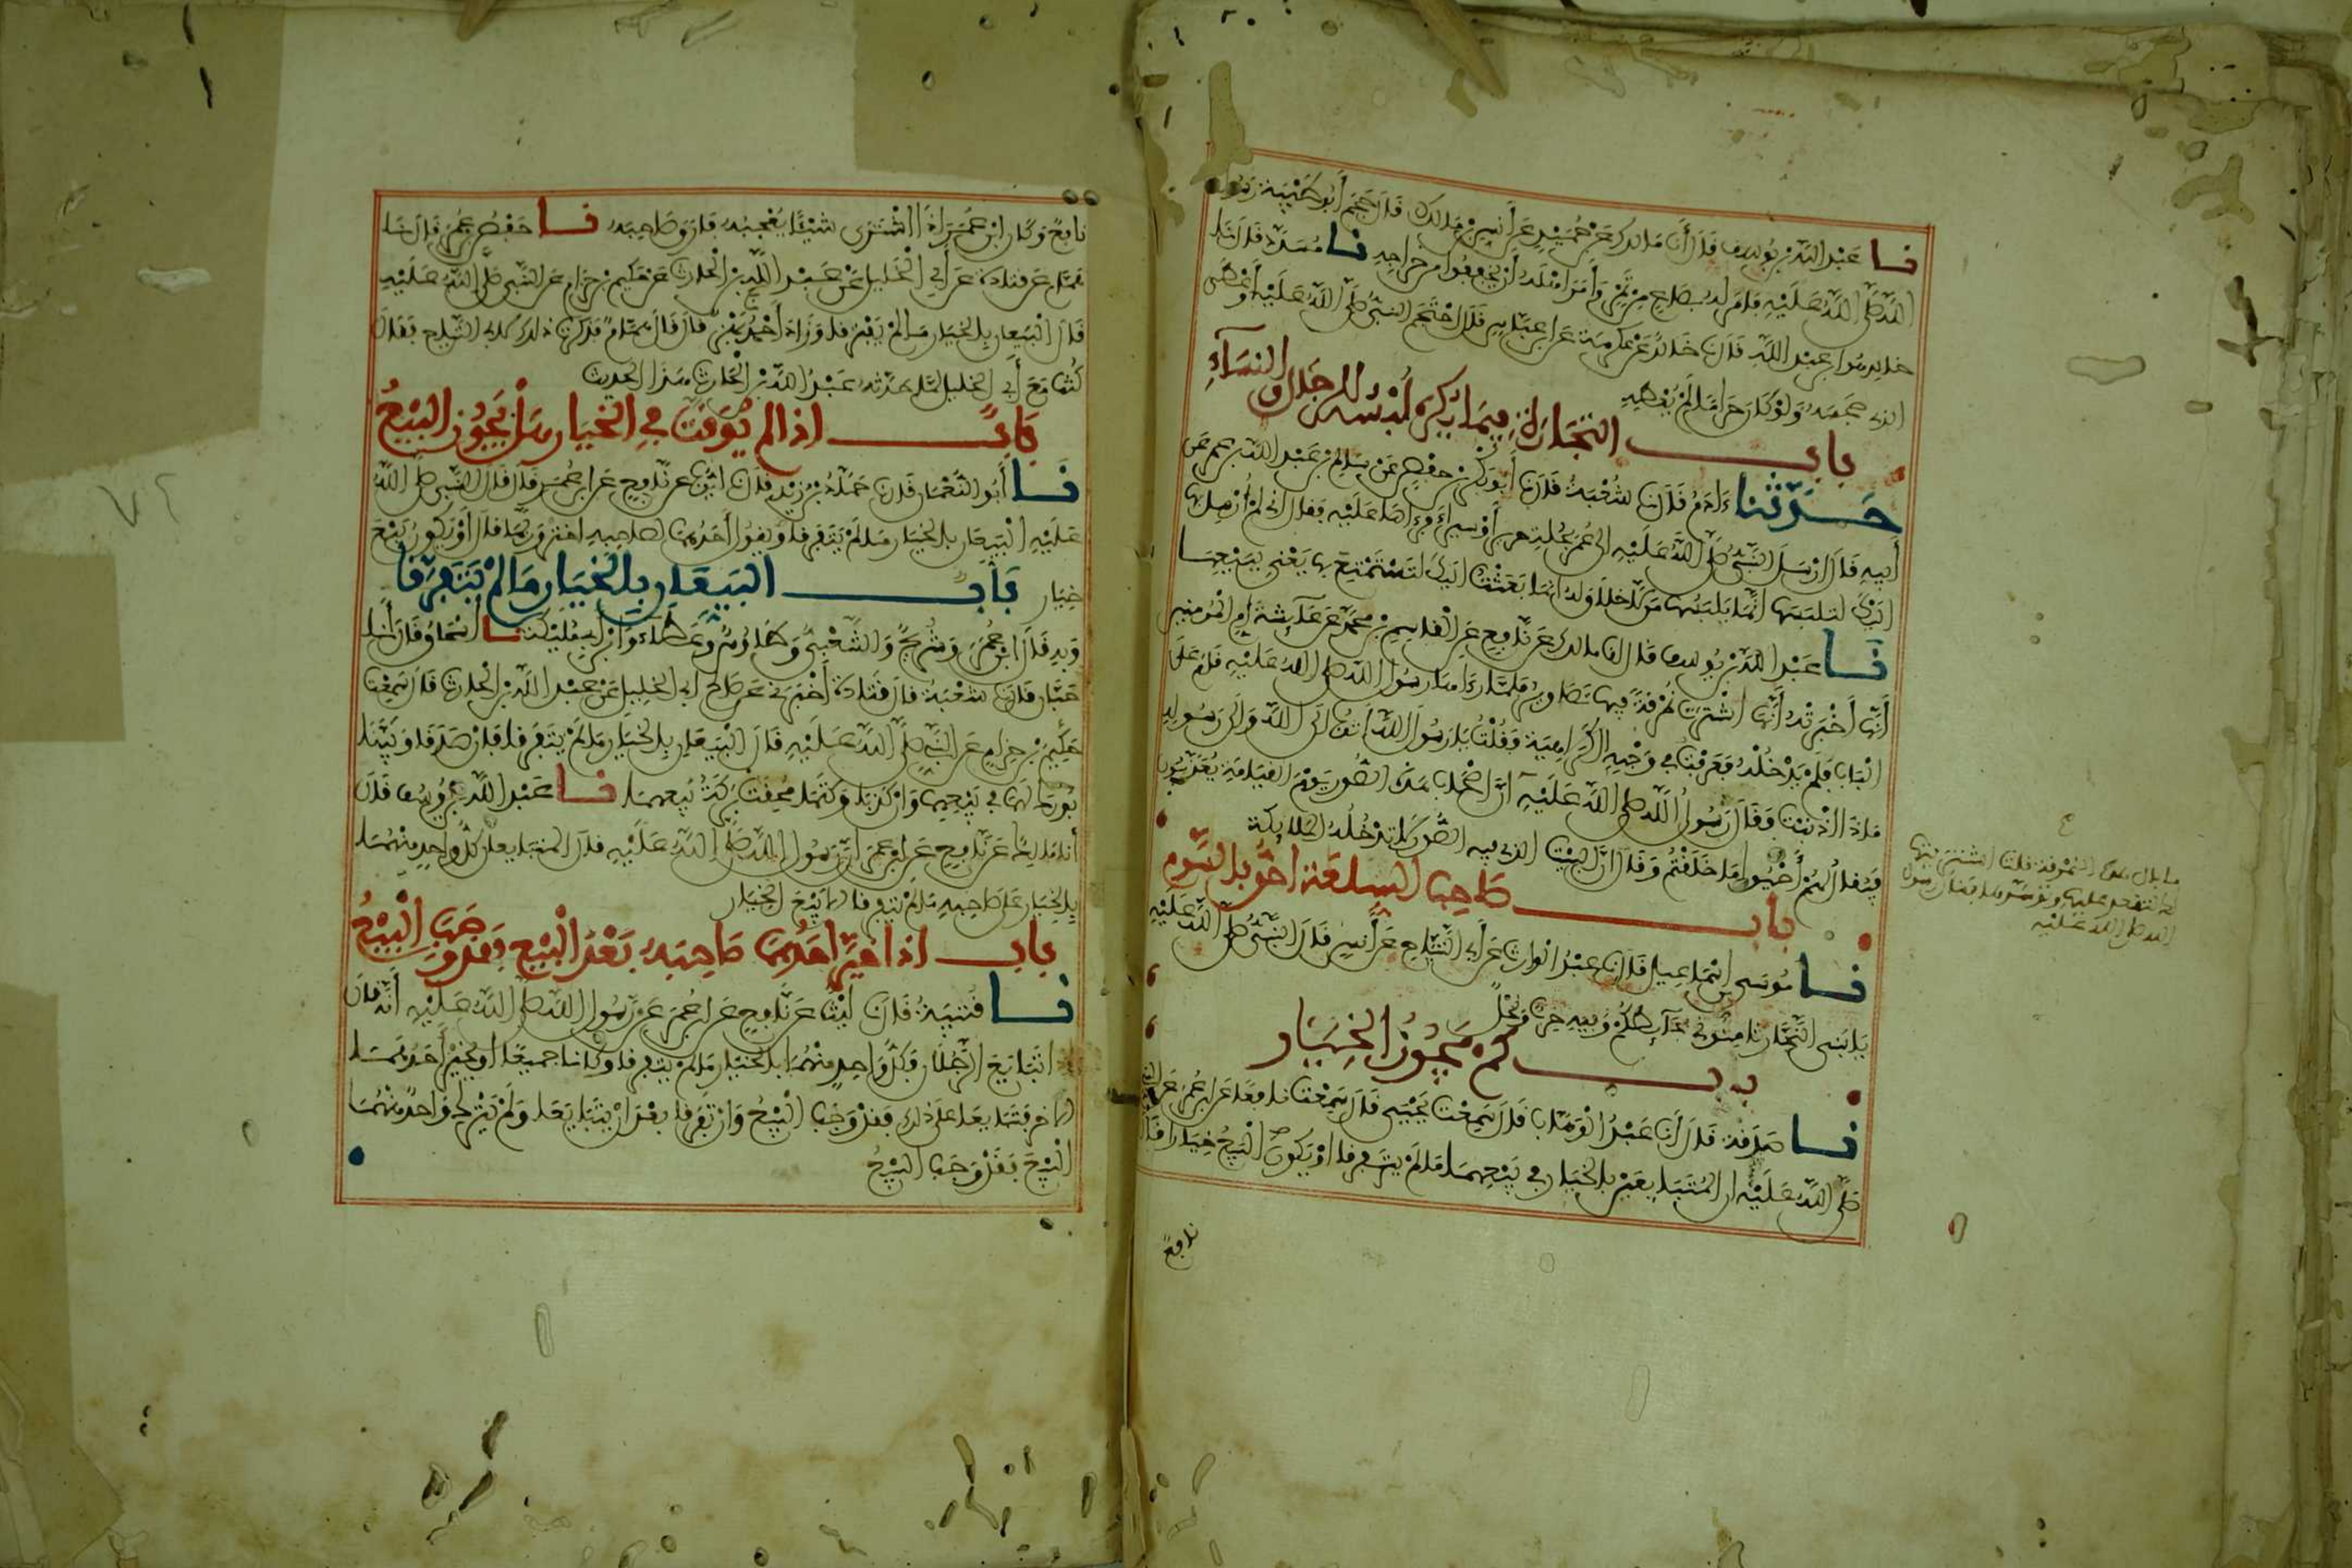 نا عبد الله بن يوسف قال أنا مالك عن حميد عن أنس بن مالك قال حجم أبو طيبة رسول
الله صلى الله عليه فامر له بصاع من تمر وأمر اهله أن يخففوا من خراجه نا مسدد قال نا
خالد هو ابن عبد الله قال نا خالد عن عكرمة عن ابن عباس قال احتجم النبي صلى الله عليه وأعطى
الذي حجمه ولو كان حراما لم يعطه
باب التجارة فيما يكره لبسه للرجال والنساء
حدثنا ءادم قال نا شعبة قال نا أبو بكر بن حفص عن سالم بن عبد الله بن عمر عن
أبيه قال ارسل النبي صلى الله عليه الى عمر بحلة حرير أو سيراء فرءاها عليه فقال اني لم أرسل بها
اليك لتلبسها انما يلبسها من لا خلاق له انما بعثت اليك لتستمتع بها يعني تبيعها
نا عبد الله بن يوسف قال انا مالك عن نافع عن القاسم بن محمد عن عائشة ام المومنين
أنها أخبرته أنها اشترت نمرقة فيها تصاوير فلما رءاها رسول الله صلى الله عليه قام على
الباب فلم يدخله فعرفت في وجهه الكراهية فقلت يا رسول الله أتوب الى الله والى رسوله
ماذا اذنبت فقال رسول الله صلى الله عليه ان اصحاب هذه الصور يوم القيامة يعذبون
فيقال لهم أحيوا ما خلقتم وقال ان البيت الذي فيه الصور لا تدخله الملائكة
باب صاحب السلعة احق بالسوم
نا موسى بن اسماعيل قال نا عبد الوارث عن أبي التياح عن أنس قال النبي صلى الله عليه
يا بني النجار ثامنوني بحائطكم وفيه خرب ونخل
باب كم يجوز الخيار
نا صدقة قال أنا عبد الوهاب قال سمعت يحيى قال سمعت نافعا عن ابن عمر عن النبي
صلى الله عليه ان المتبايعين بالخيار في بيعهما ما لم يتفرقا او يكون البيع خيارا قال
نافع
ما بال هذه النمرقة قلت اشتريتها
لك لتقعد عليها وتوسدها فقال رسول
الله صلى الله عليه
نافع وكان ابن عمر اذا اشترى شيئا يعجبه فارق صاحبه نا حفص بن عمر قال نا
همام عن قتادة عن أبي الخليل عن عبد الله بن الحارث عن حكيم بن حزام عن النبي صلى الله عليه
قال البيعان بالخيار ما لم يفترقا وزاد أحمد نا بهز قال قال همام فذكرت ذلك لابي التياح فقال
كنت مع أبي الخليل لما حدثه عبد الله بن الحارث هذا الحديث
باب اذا لم يوقت في الخيار هل يجوز البيع
نا أبو النعمان قال نا حماد بن زيد قال نا ايوب عن نافع عن ابن عمر قال قال النبي صلى الله
عليه البيعان بالخيار ما لم يتفرقا او يقول أحدهما لصاحبه اختر وربما قال أو يكون بيع
خيار باب البيعان بالخيار ما لم يتفرقا
وبه قال ابن عمر وشريح والشعبي وطاوس وعطاء وابن أبي مليكة نا اسحاق قال أنا
حبان قال نا شعبة قال قتادة أخبرني عن صالح ابي الخليل عن عبد الله بن الحارث قال سمعت
حكيم بن حزام عن النبي صلى الله عليه قال البيعان بالخيار ما لم يتفرقا فان صدقا وبينا
بورك لهما في بيعهما وان كذبا وكتما محقت بركة بيعهما نا عبد الله بن يوسف قال
أنا مالك عن نافع عن ابن عمر ان رسول الله صلى الله عليه قال المتبايعان كل واحد منهما
بالخيار على صاحبه ما لم يتفرقا الا بيع الخيار
باب اذا خير احدهما صاحبه بعد البيع فقد وجب البيع
نا قتيبة قال نا ليث عن نافع عن ابن عمر عن رسول الله صلى الله عليه أنه قال
اذا تبايع الرجلان فكل واحد منهما بالخيار ما لم يتفرقا وكانا جميعا او يخير أحدهما
الاخر فتبايعا على ذلك فقد وجب البيع وان تفرقا بعد ان يتبايعا ولم يترك واحد منهما
البيع فقد وجب البيع